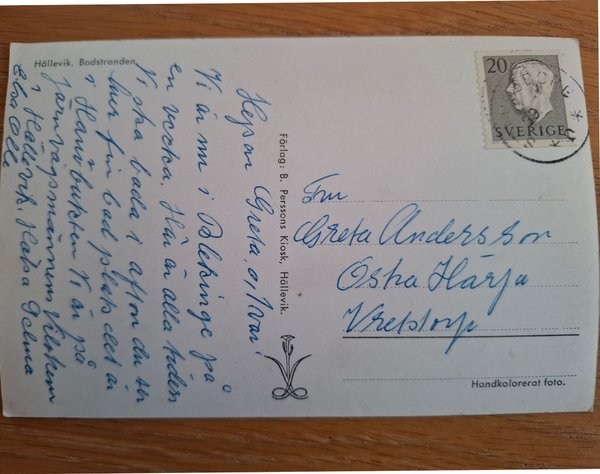 Hällevik. Badstranden.
Hejsan Greta, o, Ivar!
Vi är nu i Blekinge på
en vecka. Här är alla tiders
Vi ska bada i afton du ser
hur fin bad plats det är
i Hanöbukten Vi är på
järnvägsmännens Vilohem
i Hällevik. Hälsa
Förlag: B. Perssons Kiosk, Hällevik.
20
SVERIGE
Fru
Greta Andersson
Östra Härja
Vretstorp
Handkolorerat foto.